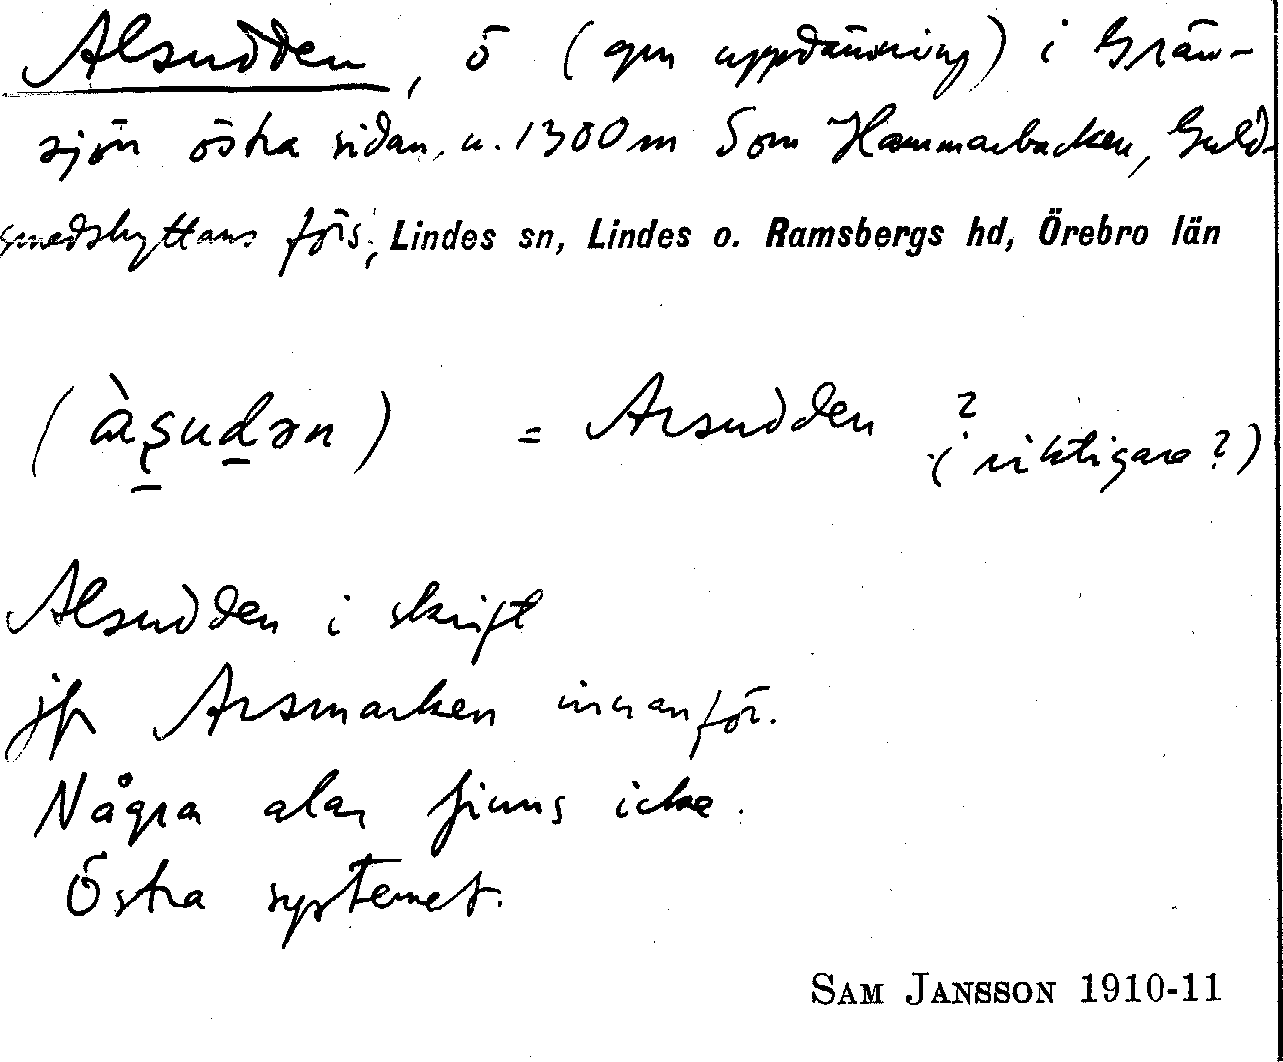 Alsudden, ö (gm uppdämning) i Grän-
sjön östra sidan, u. 1300 m Som Hammarbacken, Guld-
smedshyttans förs; Lindes sn, Lindes o. Ramsbergs hd, Örebro län
(àʂuḏən) = Arsudden ?
(riktigare?)
Alsudden i skrift
jfr Arsmarken innanför.
Några alar finns icke.
Östra systemet.
SAM JANSSON 1910-11